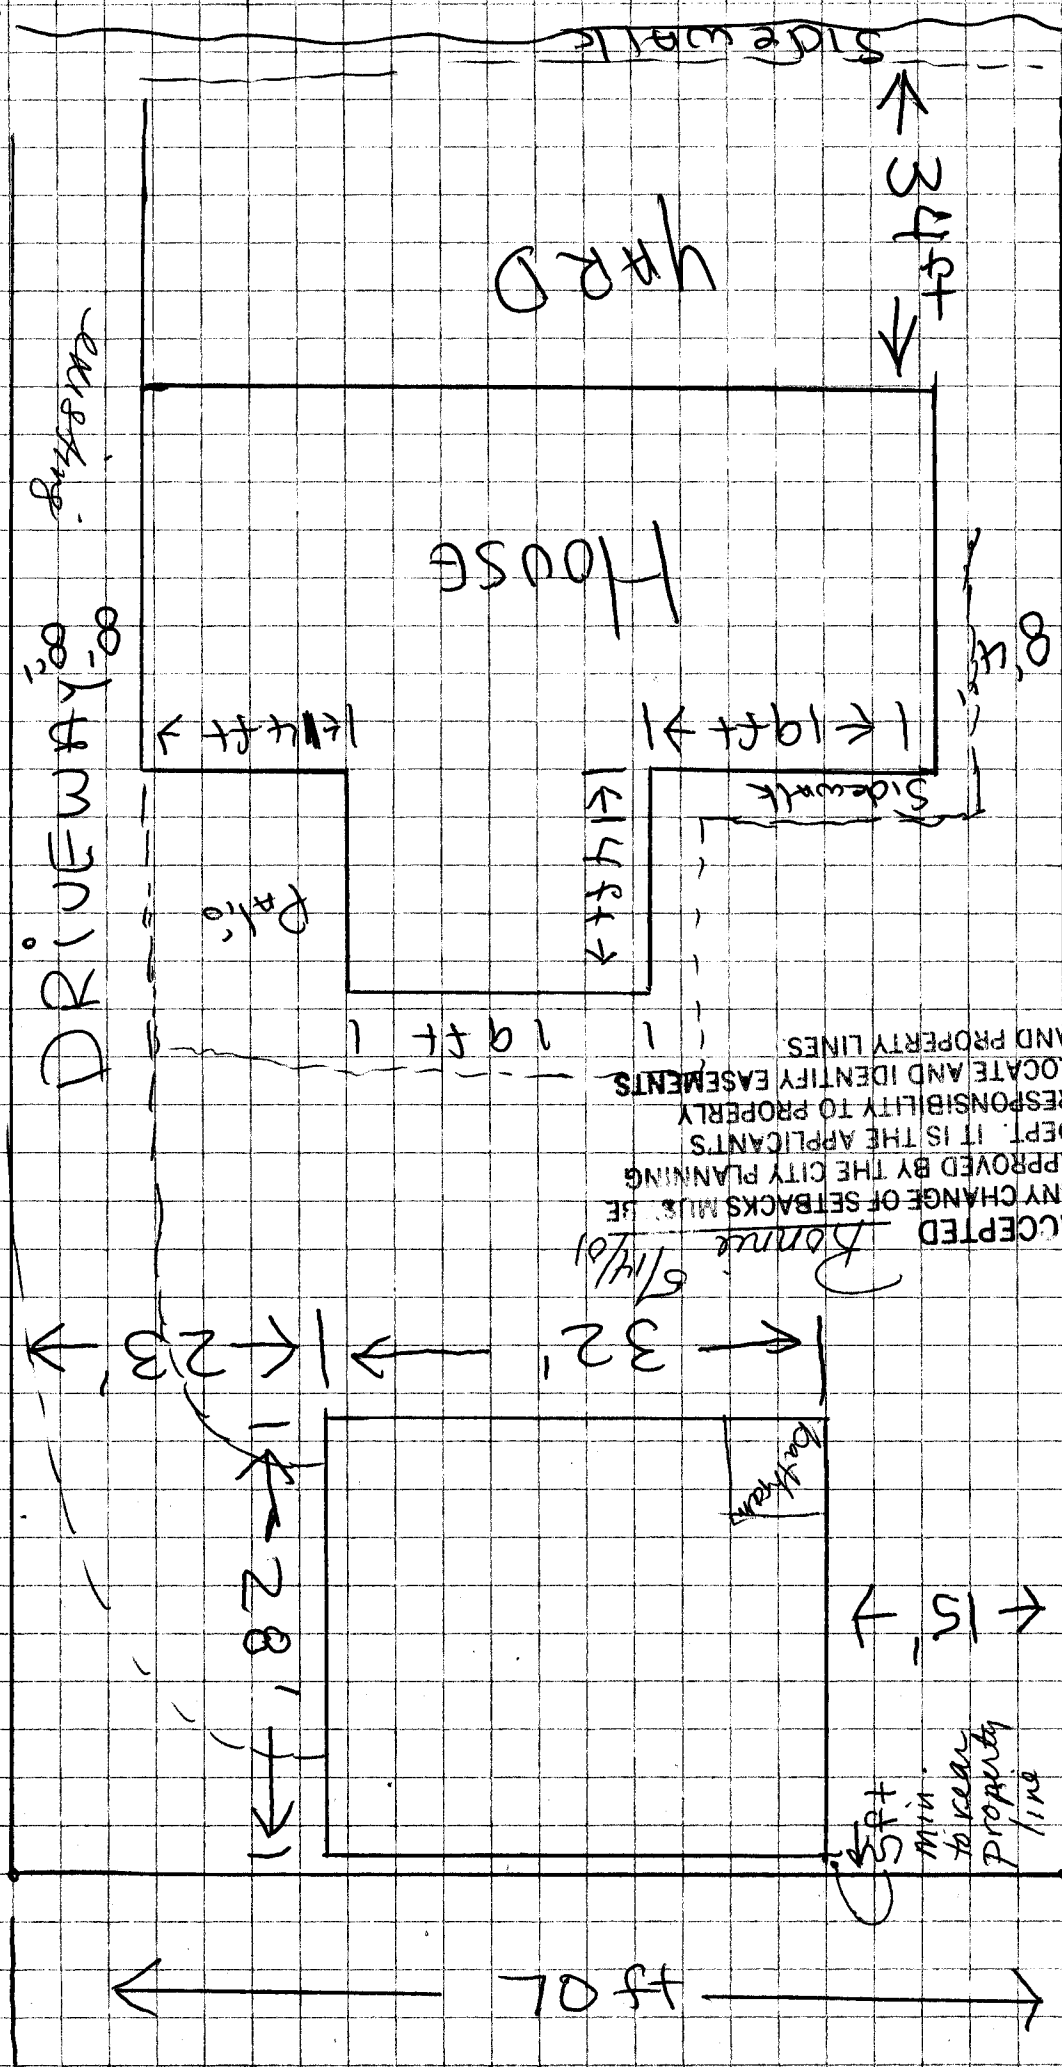 SIDEWALK
34 ft
YARD
existing
HOUSE
DRIVEWAY
8'8"
8'4"
14 ft
19 ft
Sidewalk
14 ft
Patio
19 ft
ACCEPTED Ronnie 5/14/01
ANY CHANGE OF SETBACKS MUST BE
APPROVED BY THE CITY PLANNING
DEPT. IT IS THE APPLICANT'S
RESPONSIBILITY TO PROPERLY
LOCATE AND IDENTIFY EASEMENTS
AND PROPERTY LINES
23'
32'
28'
Bathroom
15'
5 ft
min.
to rear
property
line
70 ft